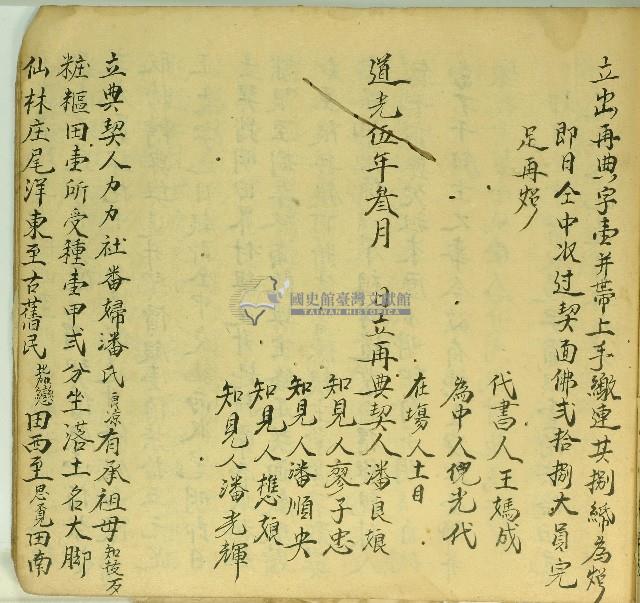 立出再典字壹并帶上手繳連共捌紙為炤
即日仝中收过契面佛弍拾捌大員完
足再炤
代書人王媽成
為中人倪光代
在塲人土目
道光伍年叁月 日立再典契人潘良娘
知見人廖子忠
知見人潘順央
知見人樵娘
知見人潘光輝
立典契人力力社番婦潘氏有承祖母
粧樞田壹所受種壹甲弍分坐落土名大脚
仙林庄尾洋東至古舊民田西至田南
國史館臺灣文獻館
TAIWAN HISTORICA